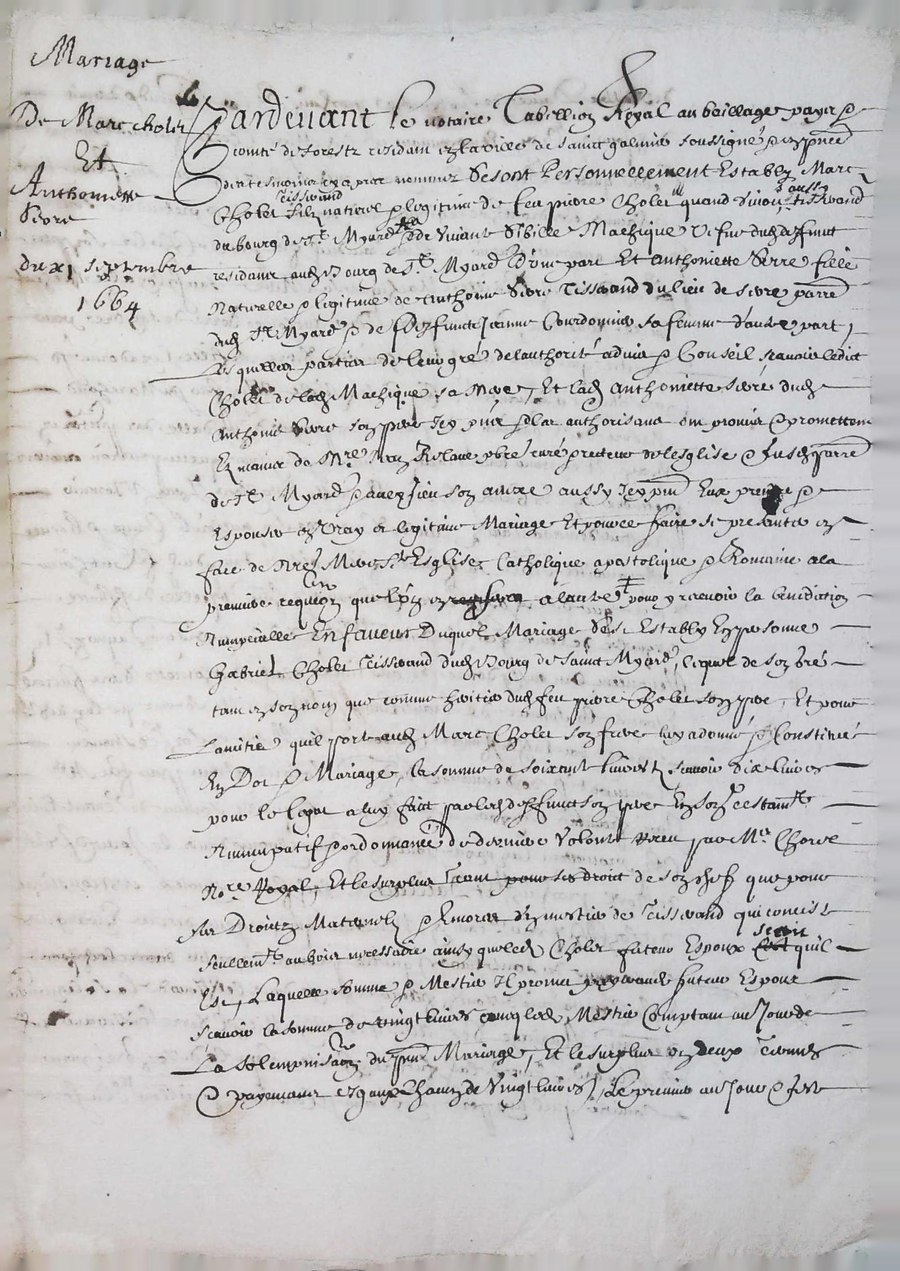 Mariage
De Marc Cholet
Et
Anthoinette
Sivre
du xi septembre
1664
Pardevant Le notaire Tabellion Royal au bailliage payx &
comté de forestz residam en la ville de sainct galmier soussigné & en pnce
des tesmoins cy apres nommez Se sont Personnellement Establiz Marc
Cholet tissirand filz naturel & legitime de feu pierre Cholet quand vivoit aussy tissirand
du bourg de St Myard & de vivante Sibille Machique Vefve dud deffunct
residans aud Bourg de St Myard D'une part Et anthoinette Sivre fille
Naturelle & legitime de Anthoine Sivre Tissirand du lieu de sivre parre
dud St Myard & de deffuncte Jeanne Courdomier sa femme d'autre part
Lesquelles parties de leur gre de lauthorité advis & Conseil scavoir ledict
Cholet de lad Machique sa Mere, Et lad Anthoinette sivre dud
Anthoine Sivre son pere Icy pnt & lad authorisant ont promis & promettent
En mains de Mre Relave pbre curé recteur de lesglise & parre
de St Myard aussy Icy pnt Eux prendre &
Espouser en Vray et legitime Mariage Et pour ce faire se presenter en
face de Nre Mere Ste Esglise Catholique apostolique & Romaine a la
premiere requion que l'un en fera a lautre pour y recevoir la benediction
Nuptialle En faveur Duquel Mariage s'est Estably En personne
Gabriel Cholet Tissirand dud Bourg de Sainct Myard, lequel de son gré
tam en son nom que comme heritier dud feu pierre Cholet son pere, Et pour
Lamitié quil porte aud Marc Cholet son frere luy a donné & Constitué
En Dot & Mariage, la somme de soixante livres scavoir dix livres
pour le legat a luy faict par led deffunct son pere En son Testamt
Nuncupatif & ordonnance de derniere Volonté receu par Me Chorel
Nore Royal, Et le surplus tant pour ses droits de son chef que pour
ses Droictz Maternelz & Encores Un mestier de Tissirand qui consist
seullemt au bois necessaire ainsy que led Cholet futeur Espoux scait quil
Est, Laquelle somme & Mestier Il promet payer aud futeur Espoux
Scavoir la somme de vingt livres avec led Mestier Comptant au Jour de
La solempnisaon du pnt Mariage, Et le surplus en deux Termes
& payemens esgaux Chacun de Vingt livres, Le premier au Jour & feste